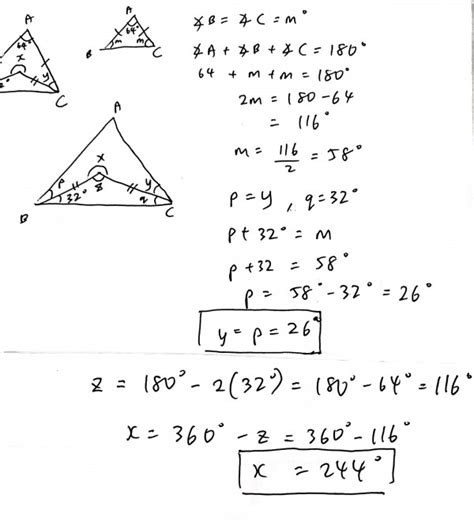 A
64°
x
z°
y
C
A
64°
m
m
B
C
∠B = ∠C = m°
∠A + ∠B + ∠C = 180°
64 + m + m = 180°
2m = 180 - 64
= 116°
m = 116/2 = 58°
A
x
z
p
32°
y
q
B
C
p = y , q = 32°
p + 32° = m
p + 32 = 58°
p = 58° - 32° = 26°
y = p = 26°
z = 180° - 2(32°) = 180° - 64° = 116°
x = 360° - z = 360° - 116°
x = 244°